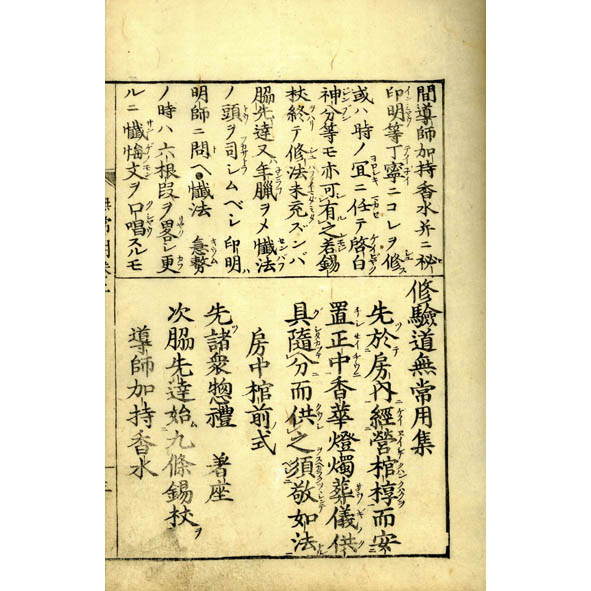 間導師加持香水并ニ秘
印明等丁寧ニコレヲ修
或ハ時ノ冝ニ任テ啓白
神分等モ亦可有之若錫
杖終テ修法未充ズンバ
脇先達又年臘ヲメ懺法
ノ頭ヲ司シムベシ印明ハ
明師ニ問ヘ懺法 急勢
ノ時ハ六根段ヲ畧シ更
ルニ懺悔文ヲ口唱スルモ
修驗道無常用集
先於房内經營棺椁而安
置正中香華燈燭葬儀供
具隨分而供之須敬如法
房中棺前式
先諸衆惣禮 着座
次脇先達始九條錫杖ヲ
導師加持香水